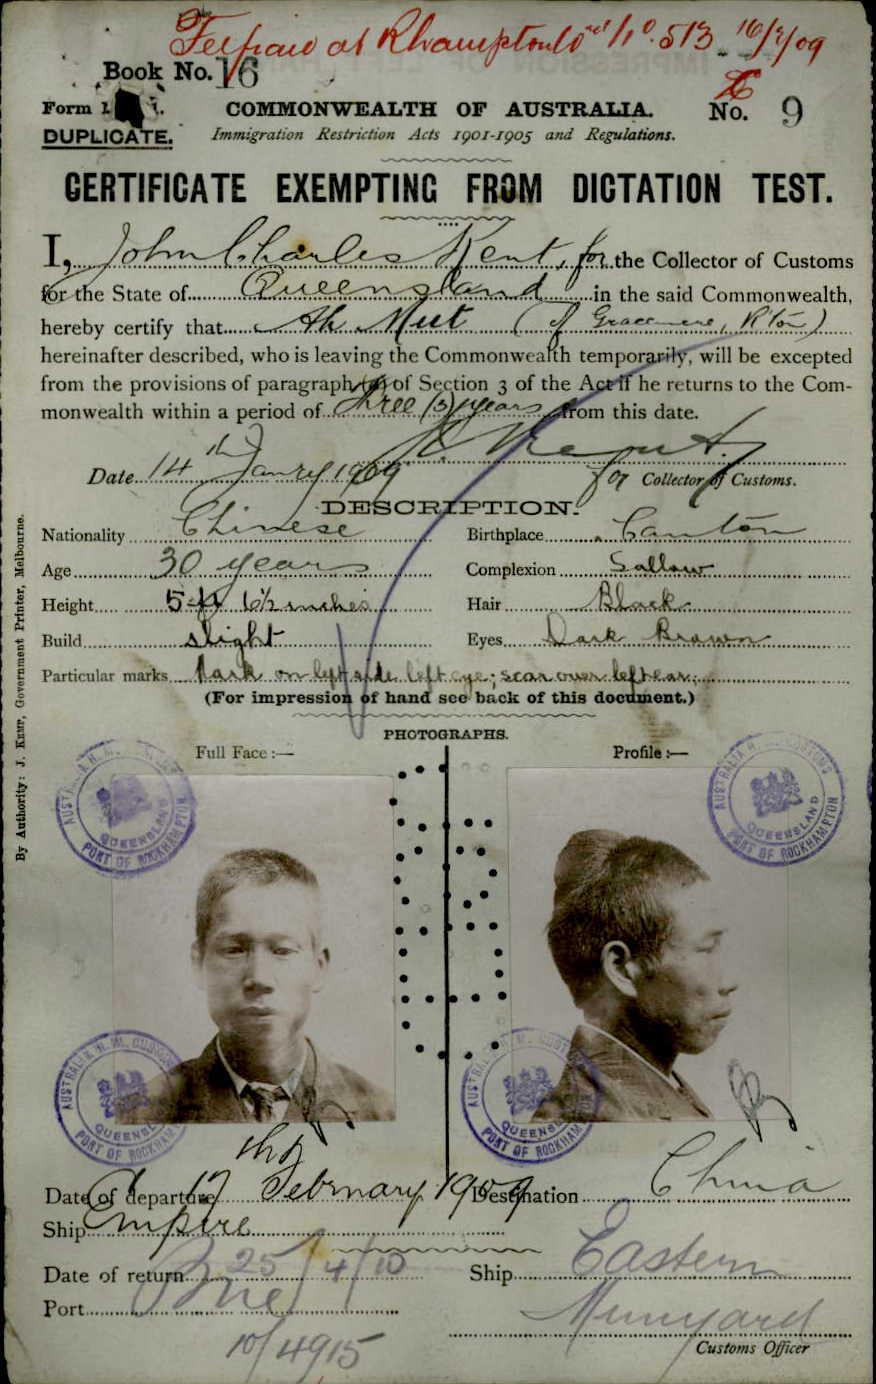 at Rhampton No. 513 16/2/09
Book No. 16
Form
No. 9
COMMONWEALTH OF AUSTRALIA.
DUPLICATE.
Immigration Restriction Acts 1901-1905 and Regulations.
CERTIFICATE EXEMPTING FROM DICTATION TEST.
I, John Charles Kent, for the Collector of Customs
for the State of Queensland in the said Commonwealth,
hereby certify that Ah (of Gracemere, R'ton)
hereinafter described, who is leaving the Commonwealth temporarily, will be excepted
from the provisions of paragraph (a) of Section 3 of the Act if he returns to the Com-
monwealth within a period of three (3) years from this date.
Date 14th Janry 1909
for Collector of Customs.
DESCRIPTION.
Nationality Chinese
Birthplace Canton
Age 30 years
Complexion Sallow
Height 5 ft 6½ inches
Hair Black
Build Slight
Eyes Dark Brown
Particular marks Mark on left side left eye; scar over left ear.
(For impression of hand see back of this document.)
PHOTOGRAPHS.
Full Face :—
Profile :—
AUSTRALIA H.M. CUSTOMS
QUEENSLAND
PORT OF ROCKHAMPTON
AUSTRALIA H.M. CUSTOMS
QUEENSLAND
PORT OF ROCKHAMPTON
AUSTRALIA H.M. CUSTOMS
QUEENSLAND
PORT OF ROCKHAMPTON
AUSTRALIA H.M. CUSTOMS
QUEENSLAND
PORT OF ROCKHAMPTON
Date of departure 17th February 1909
Destination China
Ship Empire
Date of return 25/4/10
Ship Eastern
Port Bne
10/4915
Customs Officer
By Authority: J. Kemp, Government Printer, Melbourne.